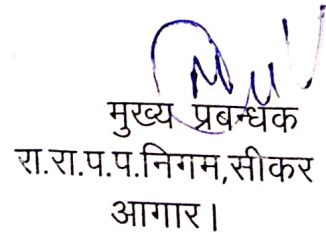 मुख्य प्रबन्धक
रा.रा.प.प.निगम,सीकर
आगार।